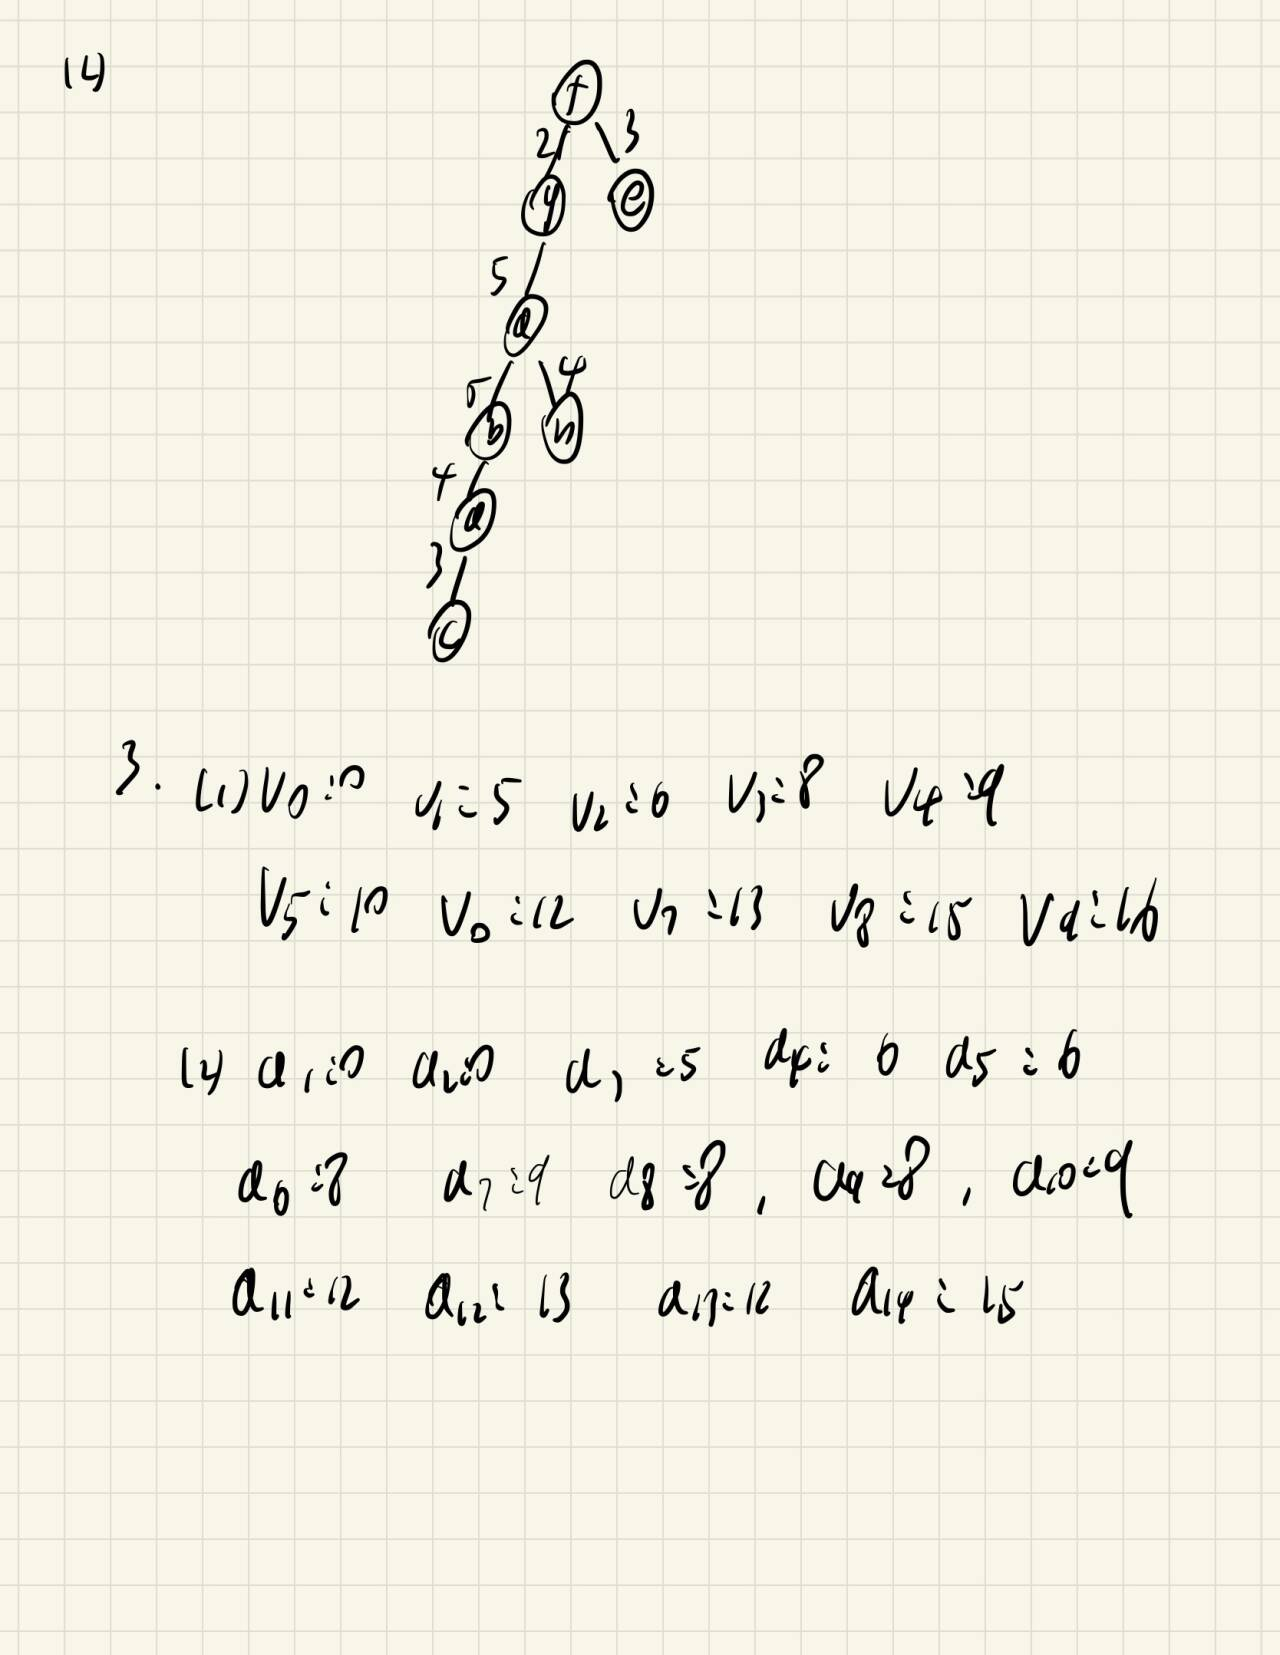 (4)
f
2 3
g e
5
a
5 4
b h
4
d
3
c
3. (1) V0:0 V1:5 V2:6 V3:8 V4:9
V5:10 V6:12 V7:13 V8:15 V9:16
(2) a1:0 a2:0 a3:5 a4:6 a5:6
a6:8 a7:9 a8:8, a9:8, a10:9
a11:12 a12:13 a13:12 a14:15